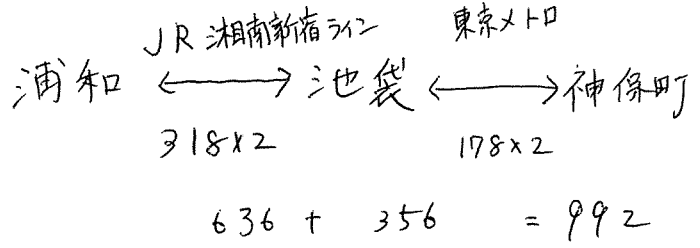 JR 湘南新宿ライン 東京メトロ
浦和 ⟷ 池袋 ⟷ 神保町
318×2 178×2
636 + 356 = 992